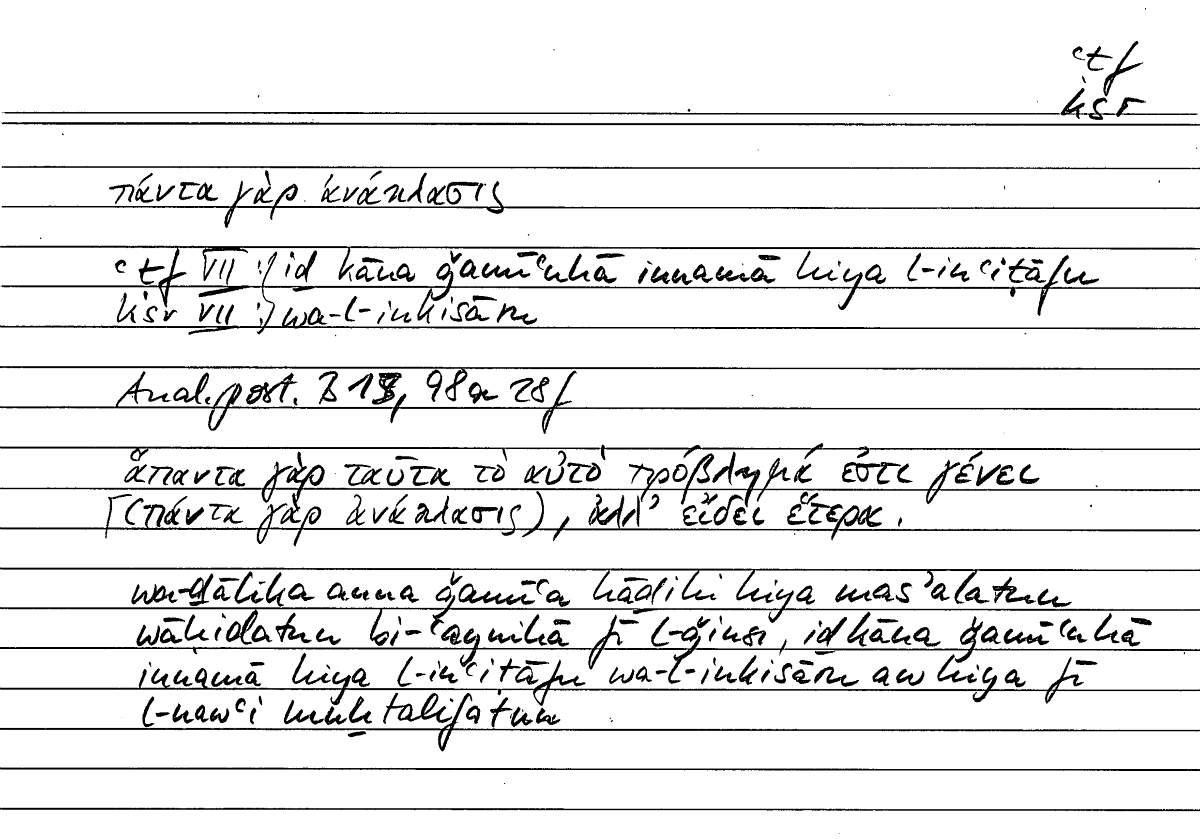 ʿṭf
ksr
πάντα γὰρ ἀνάκλασις
ʿṭf VII :) iḏ kāna ǧamīʿuhā innamā hiya l-inʿiṭāfu
ksr VII :) wa-l-inkisāru
Anal. post. B 15, 98a 28f
ἅπαντα γὰρ ταῦτα τὸ αὐτὸ πρόβλημά ἐστι γένει
⌈(πάντα γὰρ ἀνάκλασις), ἀλλ’ εἴδει ἕτερα.
wa-ḏālika anna ǧamīʿa hāḏihi hiya masʾalatun
wāḥidatun bi-ʿaynihā fī l-ǧinsi, iḏ kāna ǧamīʿuhā
innamā hiya l-inʿiṭāfu wa-l-inkisāru aw hiya fī
l-nawʿi muḫtalifatun